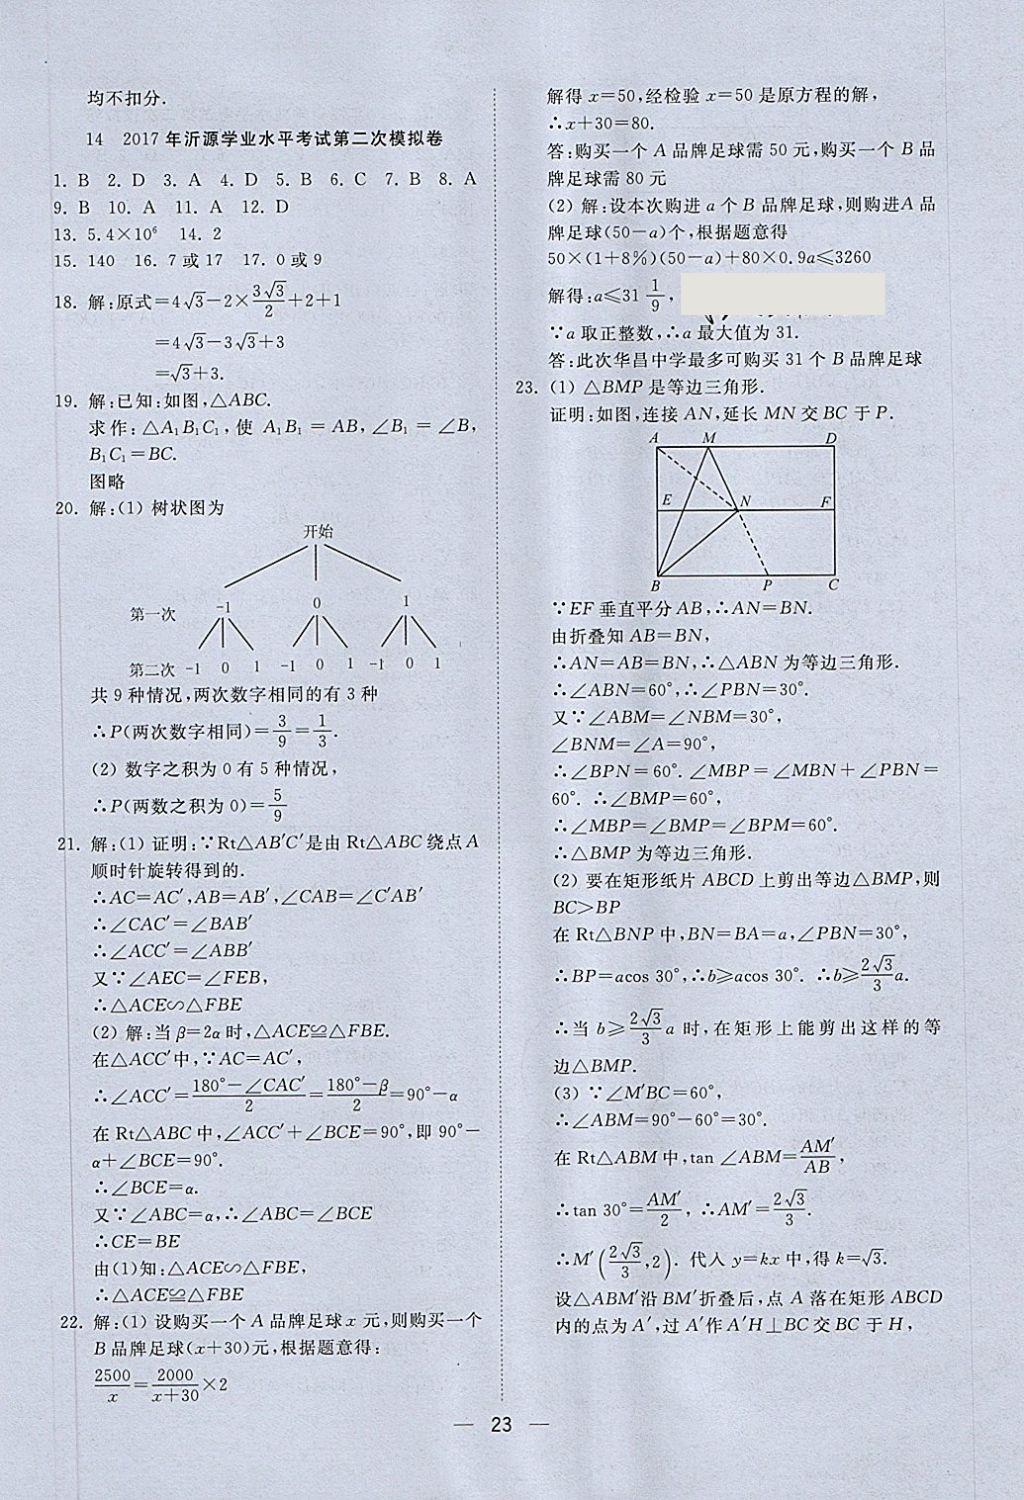 均不扣分.
14 2017 年沂源学业水平考试第二次模拟卷
1. B 2. D 3. A 4. D 5. B 6. C 7. B 8. A
9. B 10. A 11. A 12. D
13. 5.4×10⁶ 14. 2
15. 140 16. 7 或 17 17. 0 或 9
18. 解:原式=4√3-2×3√3/2+2+1
=4√3-3√3+3
=√3+3.
19. 解:已知:如图,△ABC.
求作:△A₁B₁C₁,使 A₁B₁=AB,∠B₁=∠B,
B₁C₁=BC.
图略
20. 解:(1) 树状图为
开始
第一次 -1 0 1
第二次 -1 0 1 -1 0 1 -1 0 1
共 9 种情况,两次数字相同的有 3 种
∴P(两次数字相同)=3/9=1/3.
(2) 数字之积为 0 有 5 种情况,
∴P(两数之积为 0)=5/9
21. 解:(1) 证明:∵Rt△AB′C′是由 Rt△ABC 绕点 A
顺时针旋转得到的.
∴AC=AC′,AB=AB′,∠CAB=∠C′AB′
∴∠CAC′=∠BAB′
∴∠ACC′=∠ABB′
又∵∠AEC=∠FEB,
∴△ACE∽△FBE
(2) 解:当 β=2α 时,△ACE≌△FBE.
在△ACC′中,∵AC=AC′,
∴∠ACC′=(180°-∠CAC′)/2=(180°-β)/2=90°-α
在 Rt△ABC 中,∠ACC′+∠BCE=90°,即 90°-
α+∠BCE=90°.
∴∠BCE=α.
又∵∠ABC=α,∴∠ABC=∠BCE
∴CE=BE
由(1)知:△ACE∽△FBE,
∴△ACE≌△FBE
22. 解:(1) 设购买一个 A 品牌足球 x 元,则购买一个
B 品牌足球(x+30)元,根据题意得:
2500/x=2000/(x+30)×2
解得 x=50,经检验 x=50 是原方程的解,
∴x+30=80.
答:购买一个 A 品牌足球需 50 元,购买一个 B 品
牌足球需 80 元
(2) 解:设本次购进 a 个 B 品牌足球,则购进A 品
牌足球(50-a)个,根据题意得
50×(1+8%)(50-a)+80×0.9a≤3260
解得:a≤31 1/9,
∵a 取正整数,∴a 最大值为 31.
答:此次华昌中学最多可购买 31 个 B 品牌足球
23. (1) △BMP 是等边三角形.
证明:如图,连接 AN,延长 MN 交 BC 于 P.
A M D
E N F
B P C
∵EF 垂直平分 AB,∴AN=BN.
由折叠知 AB=BN,
∴AN=AB=BN,∴△ABN 为等边三角形.
∴∠ABN=60°,∴∠PBN=30°.
又∵∠ABM=∠NBM=30°,
∠BNM=∠A=90°,
∴∠BPN=60°.∠MBP=∠MBN+∠PBN=
60°. ∴∠BMP=60°,
∴∠MBP=∠BMP=∠BPM=60°.
∴△BMP 为等边三角形.
(2) 要在矩形纸片 ABCD 上剪出等边△BMP,则
BC>BP
在 Rt△BNP 中,BN=BA=a,∠PBN=30°,
∴BP=acos 30°,∴b≥acos 30°. ∴b≥2√3/3a.
∴当 b≥2√3/3a 时,在矩形上能剪出这样的等
边△BMP.
(3) ∵∠M′BC=60°,
∴∠ABM=90°-60°=30°.
在 Rt△ABM 中,tan ∠ABM=AM′/AB,
∴tan 30°=AM′/2, ∴AM′=2√3/3.
∴M′(2√3/3,2). 代入 y=kx 中,得 k=√3.
设△ABM′沿 BM′折叠后,点 A 落在矩形 ABCD
内的点为 A′,过 A′作 A′H⊥BC 交 BC 于 H,
— 23 —